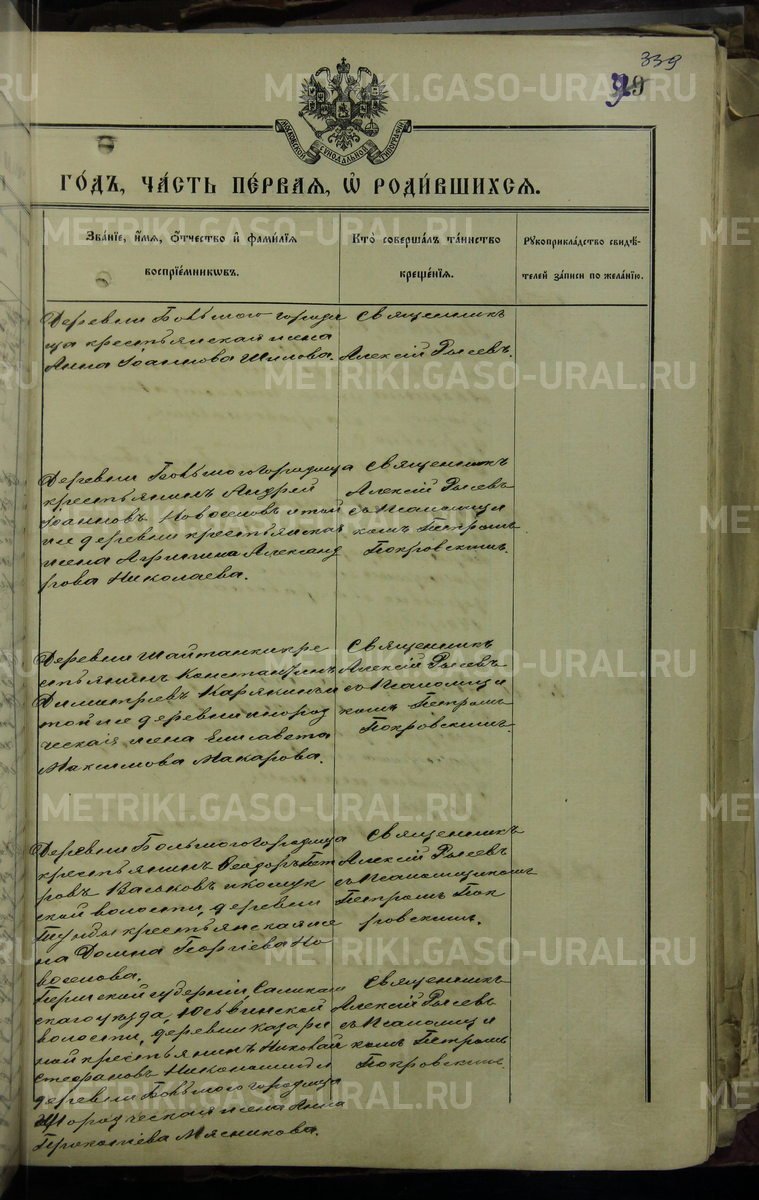 339
99
МОСКОВСКОЙ СѴНОДАЛЬНОЙ ТИПОГРАФІИ
ГО́ДЪ, ЧА́СТЬ ПЕ́РВАЯ, Ѽ РОДИ́ВШИХСЯ.
Зва́нїе, и҆́мя, ѻ҆́тчество и҆ фами́лїя
воспрїе́мникѡвъ.
Кто̀ соверша́лъ та́инство
креще́нїя.
Рꙋкоприкла́дство свидѣ́-
телей за́писи по жела́нїю.
Деревни Большого городи
ща крестьянская жена
Анна Іоаннова Шилова.
Священникъ
Алексій Рысевъ.
Деревни Большого городища
крестьянинъ Андрей
Іоанновъ Новоселовъ и той
же деревни крестьянская
жена Агрипина Александ
рова Николаева.
Священникъ
Алексій Рысевъ
съ Псаломщи
комъ Петромъ
Покровскимъ.
Деревни Шайтанки кре
стьянинъ Константинъ
Димитріевъ Карякинъ и
той же деревни инород
ческая жена Елисавета
Максимова Макарова.
Священникъ
Алексій Рысевъ
съ Псаломщи
комъ Петромъ
Покровскимъ.
Деревни Большого городища
крестьянинъ Ѳеодоръ Пет
ровъ Васьковъ и кошук
ской волости, деревни
крестьянская же
на Домна Георгіева Но
воселова.
Священникъ
Алексій Рысевъ
съ Псаломщикомъ
Петромъ Пок
ровскимъ.
Пермской губерніи Соликам
скаго уѣзда, Юсьвинской
волости, деревни
крестьянинъ Николай
Стефановъ и
деревни Большого городища
Инородческая жена Анна
Прокопіева Мясникова.
Священникъ
Алексій Рысевъ
съ Псаломщи
комъ Петромъ
Покровскимъ
METRIKI.GASO-URAL.RU